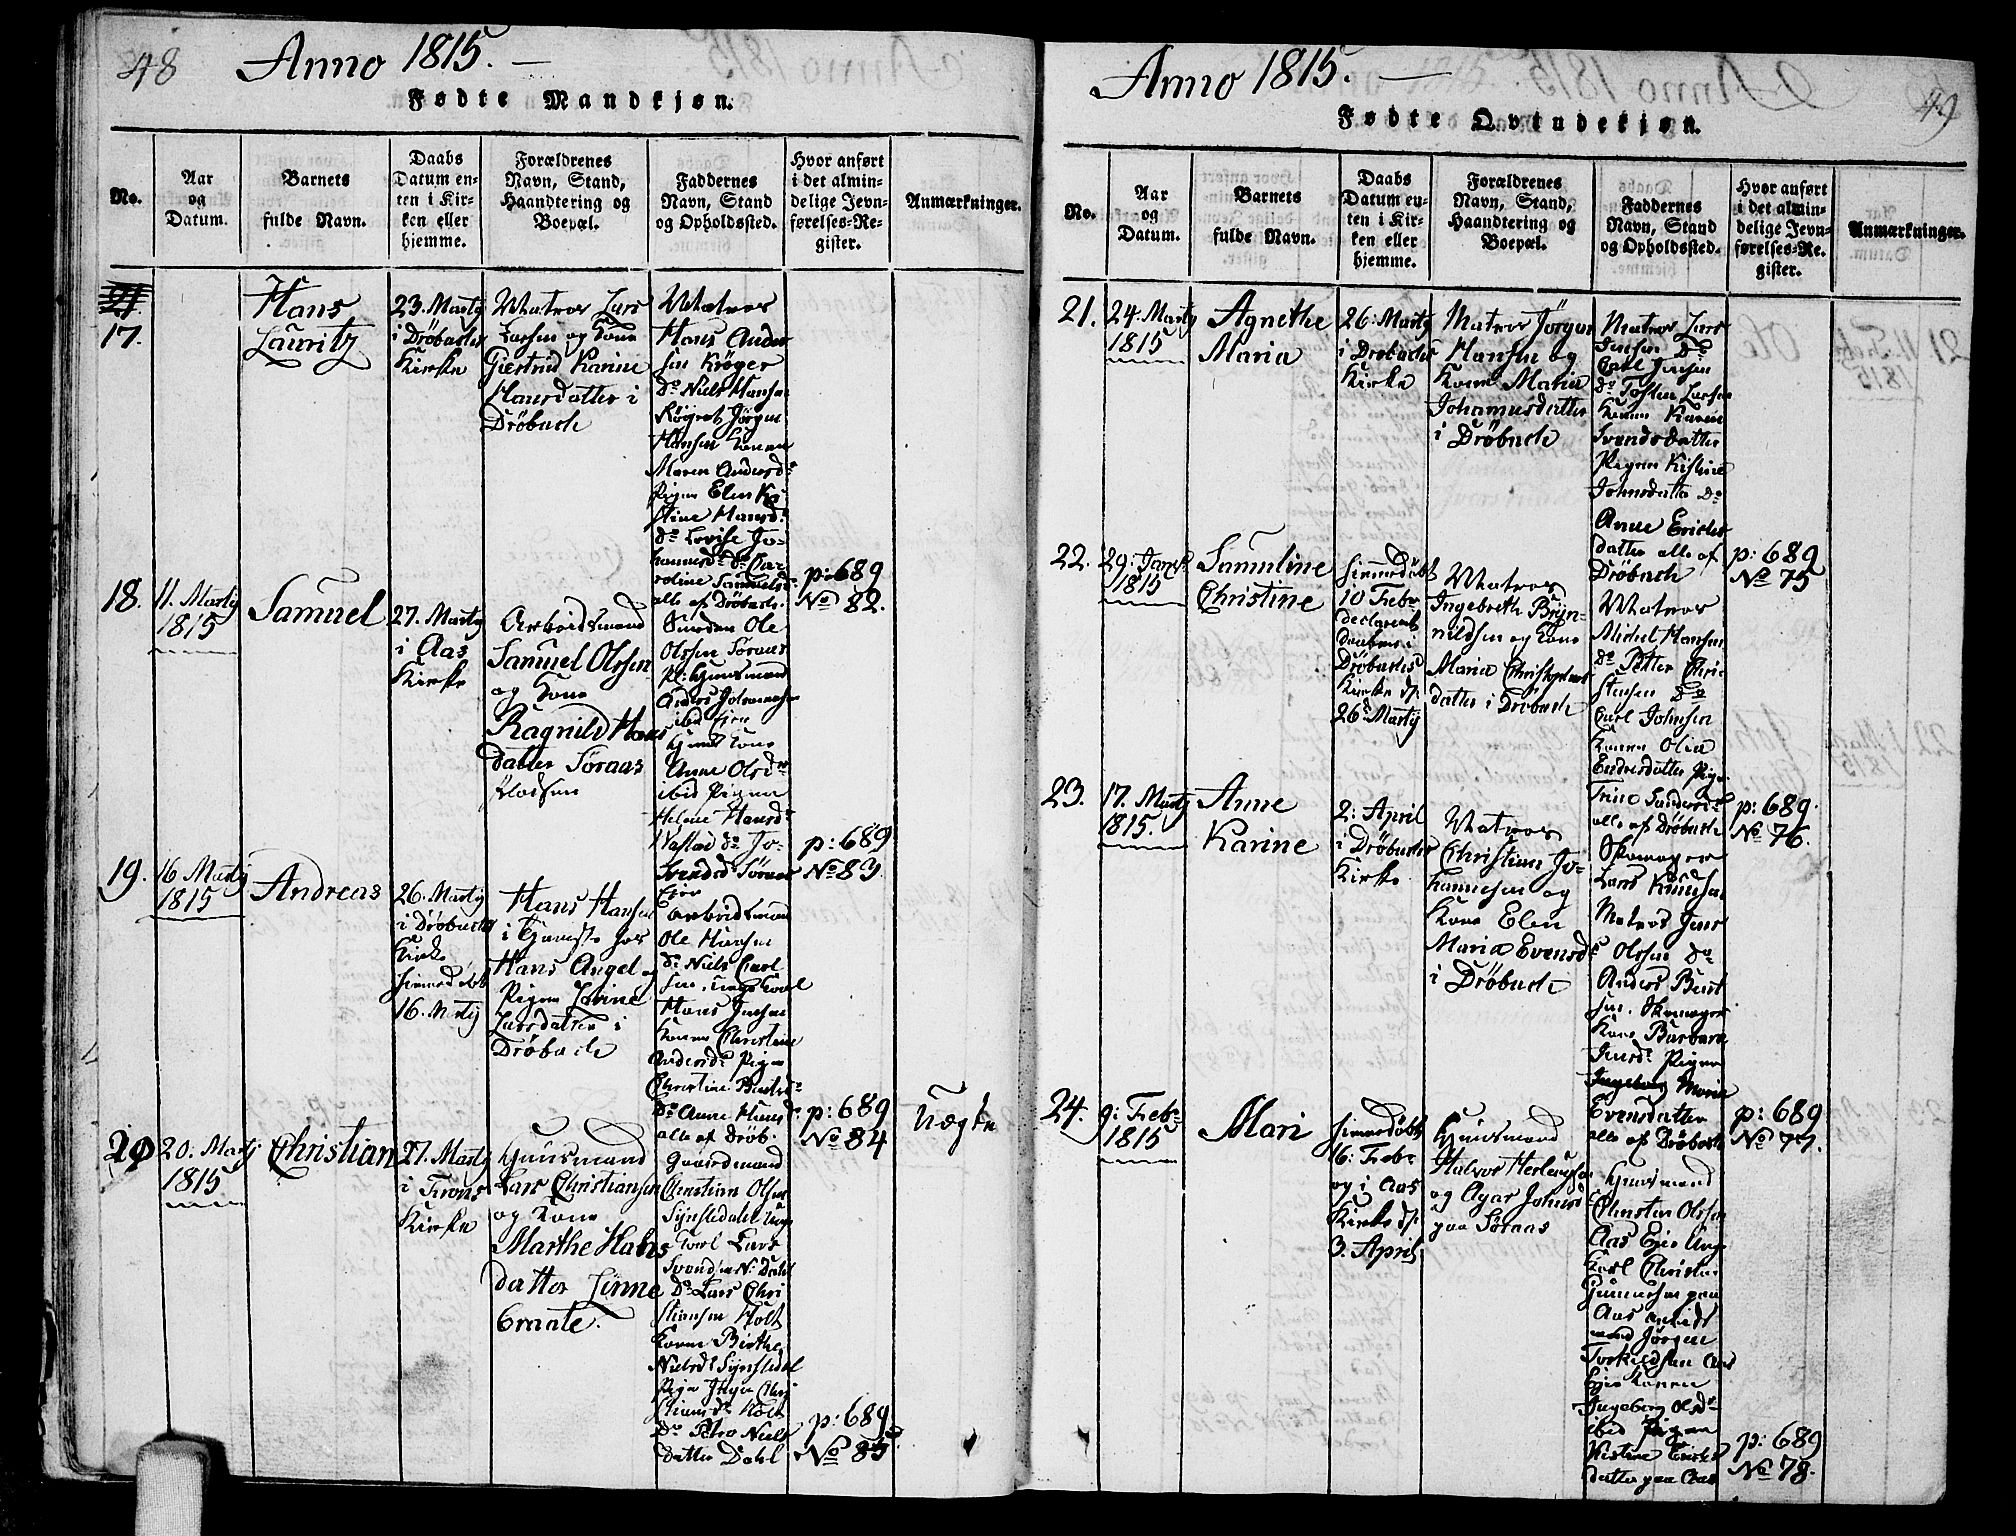 48 Anno 1815.
Fødte Mandkjøn.
No.
Aar og Datum.
Barnets fulde Navn.
Daabs Datum enten i Kirken eller hjemme.
Forældrenes Navn, Stand, Haandtering og Boepæl.
Faddernes Navn, Stand og Opholdssted.
Hvor anført i det almindelige Jevnførelses-Register.
Anmærkninger.
17.
Hans
Lauritz
23. Martj
i Drøbachs
Kirke
Matros Lars
Larsen og Kone
Giertrud Karine
Hansdatter i
Drøbach
Matros
Hans Ander
sen Krøger
Do Niels Hansen
Jørgen
Hansen Konen
Maren Andersd.
Pigen Elen Ki
stine Hansd.
do Lovise Jo-
hannesd. do Ca-
roline Samuelsd.
alle af Drøbach.
p: 689
No 82.
18.
11. Martj
1815
Samuel
27. Martj
i Aas
Kirke
Arbeidsmand
Samuel Olssen
og Kone
Ragnild Hans
datter Søraas
Pladsen
Smeden Ole
Olssen Søraas
pl. Huusmand
Anders Johannesen
ibid Eier
Huusm. Kone
Anne Olsdr
ibid Pigen
Helene Hansdr
do Jo-
Søraas
Eier
p: 689
No 83.
19.
16 Martj
1815
Andreas
26. Martj
i Drøbachs
Kirke
hiemedøbt
16. Martj
Hans Hansen
i Tjeneste hos
Hans Angel og
Pigen Lovine
Larsdatter i
Drøbach
Arbeidsmand
Ole Hansen
do Niels Carl
sen, Ungekarl
Hans Jensen
Konen Christine
Andersdr Pigen
Christine Bentsdr
do Anne Hansd.
alle af Drøb.
p: 689
No 84
Uægte
20
20. Martj
1815
Christian
27. Martj
i Frons
Kirke
Huusmand
Lars Christiansen
og Kone
Marthe Hans
datter Linne
Braate.
Gaardmand
Christian Olsen
Synstedahl Ung
Karl Lars
Svendsen N. Dahl
Do Lars Chri
stiansen Holt
Konen Birthe
Nielsdr Synstedal
Pige Inger Chri
stiansdr Holt
Do Petro Niels
datter Dahl
p: 689
No 85.
Anno 1815.
49
Fødte Qvindekjøn.
No.
Aar og Datum.
Barnets fulde Navn.
Daabs Datum enten i Kirken eller hjemme.
Forældrenes Navn, Stand, Haandtering og Boepæl.
Faddernes Navn, Stand og Opholdssted.
Hvor anført i det almindelige Jevnførelses-Register.
Anmærkninger.
21.
24. Martj
1815
Agnethe
Maria
26. Martj
i Drøbachs
Kirke
Matros Jörgen
Hansen og
Kone Maria
Johannesdatter
i Drøbach
Matros Lars
Jensen Do
Carl Jensen
do Tosten Larsen
Konen Karen
Svendsdatter
Pigen Kistine
Johnsdatter Do
Anne Erichs
datter alle af
Drøbach
p: 689
No 75
22.
29: Jan
1815
Samuline
Christine
hiemmedøbt
10 Febr
declareret
Daaben i
Drøbachs
Kirke d.
26. Martj
Matros
Ingebreth Bryn-
nildsen og Kone
Maria Christophers
datter i Drøbach
Matros
Michel Hansen
do Petter Chri
stensen Do
Carl Johnsen
Konen Olia
Endresdatter Pige
Trine Sandersdr
alle af Drøbach
p: 689.
No 76.
23.
17. Martj
1815.
Anne
Karine
2: April
i Drøbachs
Kirke
Matros
Christian Jo-
hannesen og
Kone Elen
Maria Evensdr
i Drøbach
Skomager
Lars Knudsen
Matros Jens
Olssen Do
Anders Bent
sen. Skomager
Kone Barbara
Jensdr Pigen
Ingeborg Maria
Evensdatter
alle af Drøbach
p: 689
No 77.
24.
9: Febr
1815
Mari
hiemmedøbt
16: Febr
og i Aas
Kirke d.
3. April
Huusmand
Halvor Herlaugsen
og Agar Johnsd
paa Søraas
Huusmand
Christen Olssen
Aas Eier Ung
Karl Christen
Gunnersen paa
Aas arbeids
mand Jørgen
Torkildsen Aas
Eier Konen
Ingeborg Olsdr
ibid Pigen
Kistine Erichs
datter paa Aas
p: 689
No 78.